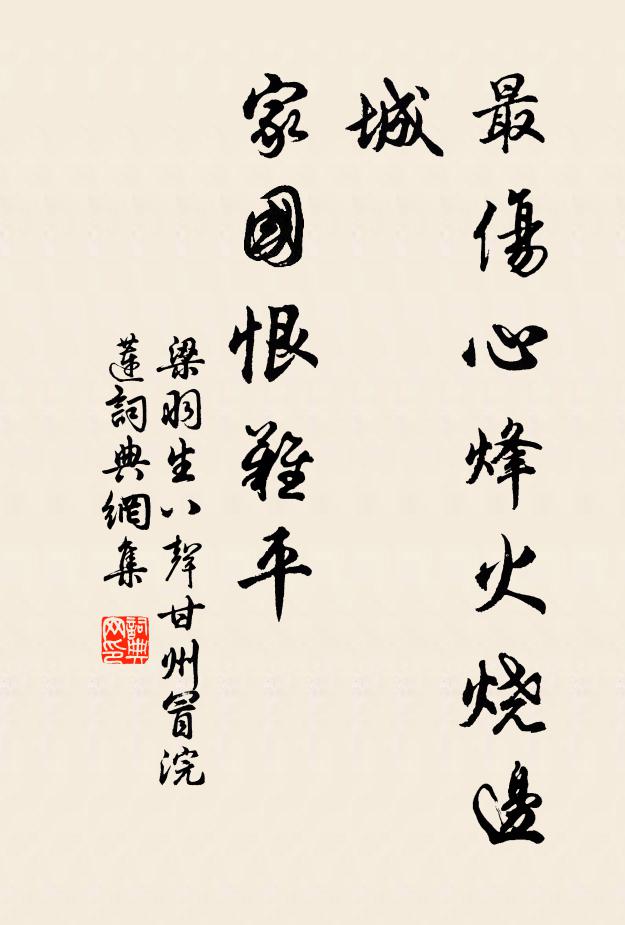 最傷心烽火燒邊
城
家國恨難平
梁羽生八聲甘州冒浣
蓮詞典網集
詞典
网印